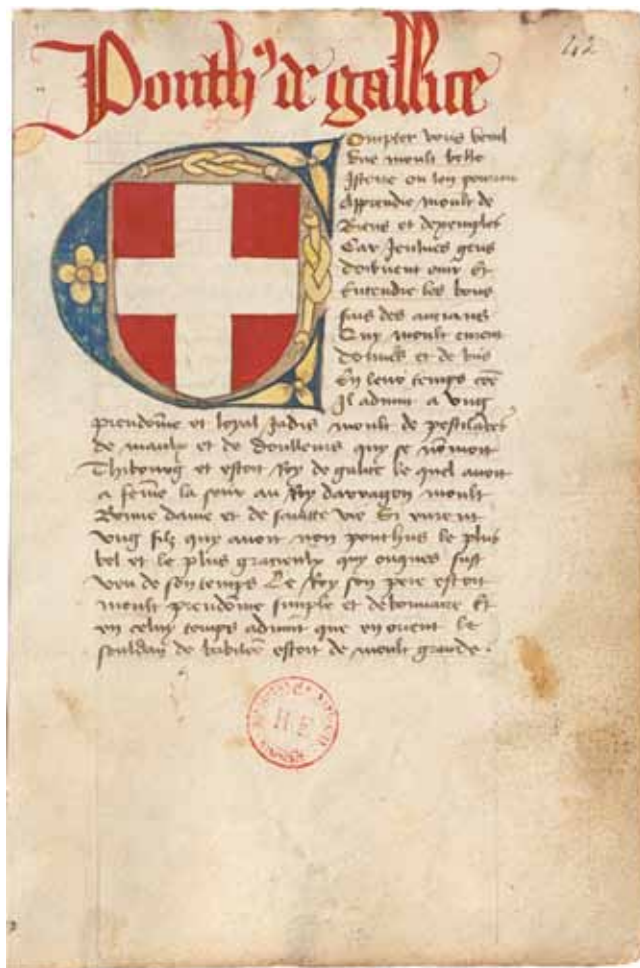 Ponth9 de gallice
42
Compter vous vueil
Une moult belle
Istoire ou lon pourra
Apprendre moult de
Biens et dexemples
Car Jeulnes gens
doibvent ouir Et
Entendre les bons
fais des ancians
Quy moult eurent
de maulx et de
En leur temps
Il advint a ung
preudome et loyal Jadis moult de pestilances
de maulx et de doulleurs quy se nomoit
Thibourg et estoit Roy de galice le quel avoit
a feme la seur au Roy darragon moult
Bonne dame et de saincte vie Et eurent
ung filz quy avoit non ponthus le plus
bel et le plus gracieulx quy onques fust
veu de son temps Le Roy son pere estoit
moult preudome simple et debonnaire Et
en celuy temps advint que en orient le
souldan de babiloe estoit de moult grande .
H E